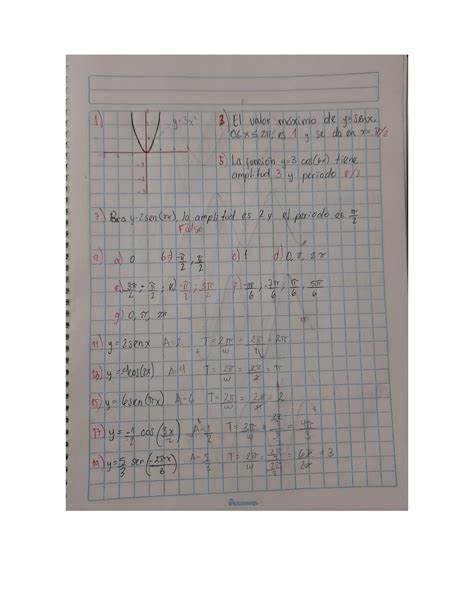 1) y=3x²
3) El valor máximo de y=senx,
0≤x≤2π; es 1 y se da en x=π/2
5) La función y=3 cos(6x) tiene
amplitud 3 y periodo π/2
7) Para y=2sen(πx), la amplitud es 2 y el periodo es π/2
Falso
9) a) 0 b) -π/2, π/2 c) 1 d) 0, π, 2π
e) 3π/2; -π/2; -π/2; 3π/2 f) π/6; 5π/6
g) 0, π, 2π
11) y=2senx A=2 T=2π/w = 2π/1 = 2π
y=4cos(2x) A=4 T=2π/w = 2π/2 = π
15) y=6sen(πx) A=6 T=2π/w = 2π/π = 2
17) y=-1/2 cos(3x/2) A=1/2 T=2π/w = 2π/(3/2) = 4π/3
19) y=5/3 sen(-2πx/6) A=5/3 T=2π/w = = 6π/2π = 3